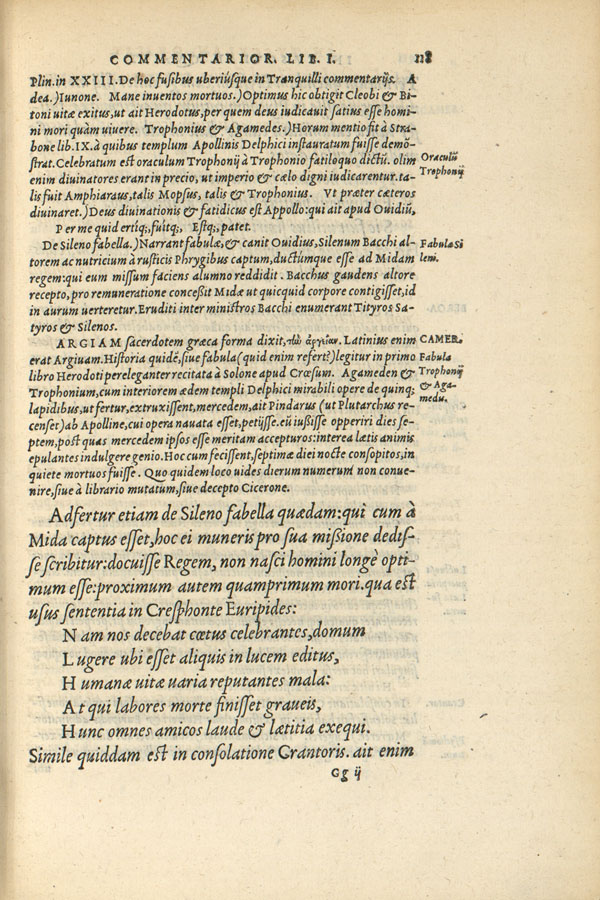 COMMENTARIOR. LIB. I. 118
Plin. in XXIII. De hoc fusibus uberiúsque in Tranquilli commentarijs. A
dea.) Iunone. Mane inuentos mortuos.) Optimus hic obtigit Cleobi & Bi-
toni uitæ exitus, ut ait Herodotus, per quem deus iudicauit satius esse homi-
ni mori quàm uiuere. Trophonius & Agamedes.) Horum mentio fit à Stra-
bone lib. IX. à quibus templum Apollinis Delphici instauratum fuisse demõ-
strat. Celebratum est oraculum Trophonij à Trophonio fatiloquo dictũ. olim
Oraculũ
Trophonij
enim diuinatores erant in precio, ut imperio & cælo digni iudicarentur. ta-
lis fuit Amphiaraus, talis Mopsus, talis & Trophonius. Vt præter cæteros
diuinaret.) Deus diuinationis & fatidicus est Appollo: qui ait apud Ouidiũ,
Per me quid eritq;, fuitq;, Estq;, patet.
De Sileno fabella.) Narrant fabulæ, & canit Ouidius, Silenum Bacchi al-
Fabula Si
leni.
torem ac nutricium à rusticis Phrygibus captum, ductúmque esse ad Midam
regem: qui eum missum faciens alumno reddidit. Bacchus gaudens altore
recepto, pro remuneratione concessit Midæ ut quicquid corpore contigisset, id
in aurum uerteretur. Eruditi inter ministros Bacchi enumerant Tityros Sa-
tyros & Silenos.
ARGIAM sacerdotem græca forma dixit, τὼ ἀργείαν. Latinius enim
CAMER.
erat Argiuam. Historia quidẽ, siue fabula (quid enim refert?) legitur in primo
Fabula
Trophonij
& Aga-
medu.
libro Herodoti pereleganter recitata à Solone apud Crœsum. Agameden &
Trophonium, cum interiorem ædem templi Delphici mirabili opere de quinq;
lapidibus, ut fertur, extruxissent, mercedem, ait Pindarus (ut Plutarchus re-
censet) ab Apolline, cui opera nauata esset, petijsse. eũ iußisse opperiri dies se-
ptem, post quas mercedem ipsos esse meritam accepturos: interea lætis animis
epulantes indulgere genio. Hoc cum fecissent, septimæ diei nocte consopitos, in
quiete mortuos fuisse. Quo quidem loco uides dierum numerum non conue-
nire, siue à librario mutatum, siue decepto Cicerone.
Adfertur etiam de Sileno fabella quædam: qui cum à
Mida captus esset, hoc ei muneris pro sua mißione dedis-
se scribitur: docuisse Regem, non nasci homini longè opti-
mum esse: proximum autem quamprimum mori. qua est
usus sententia in Cresphonte Euripides:
Nam nos decebat cœtus celebrantes, domum
Lugere ubi esset aliquis in lucem editus,
Humanæ uitæ uaria reputantes mala:
At qui labores morte finisset graueis,
Hunc omnes amicos laude & lætitia exequi.
Simile quiddam est in consolatione Crantoris. ait enim
Gg ij